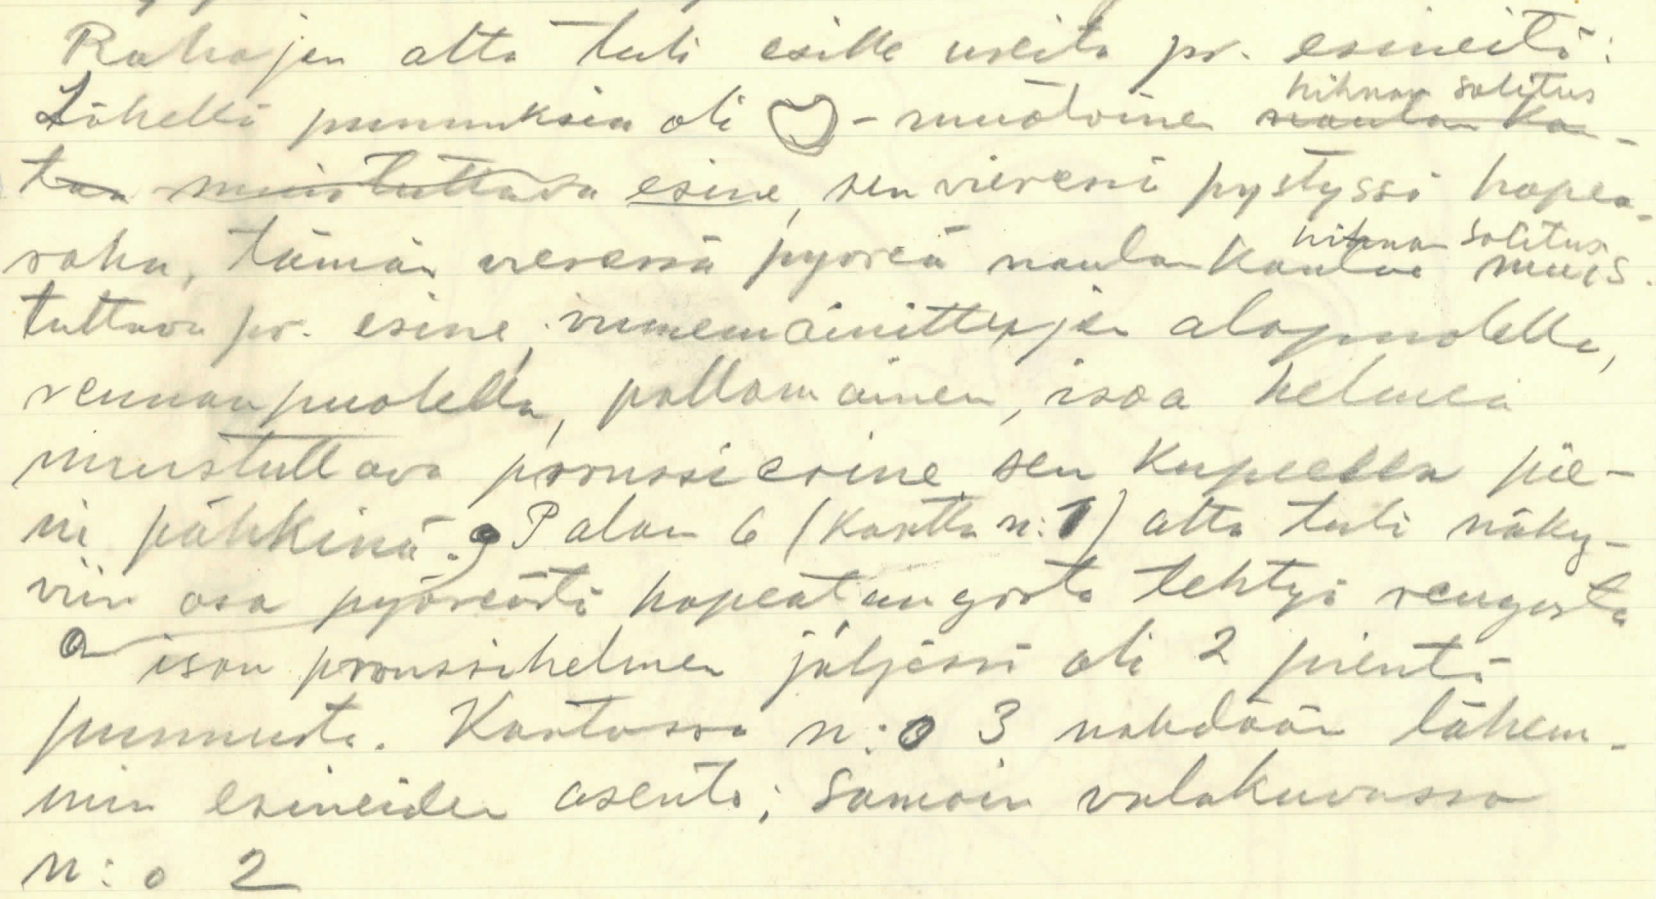 Rahojen alta tuli esille useita pr. esineitä:
Lähellä punnuksia oli - muotoinen naulan kan- hihnan solitus
taa muistuttava esine, sen vieressä pystyssä hopea-
raha, tämän vieressä pyöreä naulan kantaa muis- hihnan solitus
tuttava pr. esine, viimemainittujen alapuolella,
rennanpuolella, pallomainen, isoa helmeä
muistuttava pronssiesine, sen kupeella pie-
ni pähkinä. Palan 6 (Kartta n:1) alta tuli näky-
viin osa pyöreästä hopeatangosta tehtyä rengasta
ison pronssihelmen jäljessä oli 2 pientä
punnusta. Kartassa n:o 3 nähdään lähem-
min esineiden asento; samoin valokuvassa
n:o 2